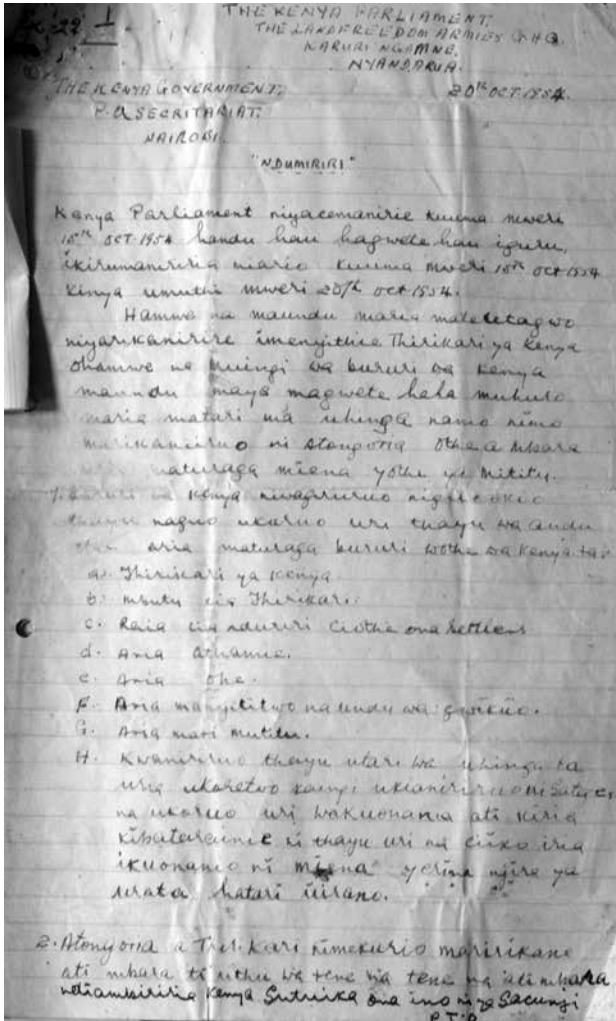 THE KENYA PARLIAMENT,
THE LANDFREEDOM ARMIES G.H.Q.
KARURI NGAMNE,
NYANDARUA.
THE KENYA GOVERNMENT, 20th OCT. 1954.
P.O. SECRITARIAT,
NAIROBI.
"NDUMIRIRI"
Kenya Parliament niyacemanirie kuuma mweri
18th OCT. 1954 handu hau hagwete hau iguru,
ikirumanirira miario kuuma mweri 18th Oct 1954
Kinya umuthi mweri 20th Oct 1954.
Hamwe na maundu maria
niyarikanirire imenyithie Thirikari ya Kenya
ohamwe na muingi wa bururi wa Kenya
maundu maya magwete haha muhuro
maria matari ma uhinga namo nimo
ni Atongoria Othe a mbara
maturaga miena yothe ya Mititu.
1. Bururi wa Kenya
thayu naguo ukoruo uri thayu wa andu
aria maturaga bururi wothe wa Kenya
a. Thirikari ya Kenya
b. mbutu cia Thirikari.
c. Raia cia nduriri Ciothe ona Settlers
d. Aria Athamie.
e. Aria Ohe.
F. Aria manyititwo na undu wa gwikuo.
G. Aria mari mutitu.
H. thayu utari wa uhinga ta
uria ukoretwo
na ukoruo uri wakuonania ati kiria
ni thayu uri na ciiko iria
ikuonanio ni miena yerina njira ya
urata hatari
2. Atongoria a Thirikari maririkane
ati mbara ti uthu wa tene wa tene na ati mbara
Kenya ona ino niya
P.T.O